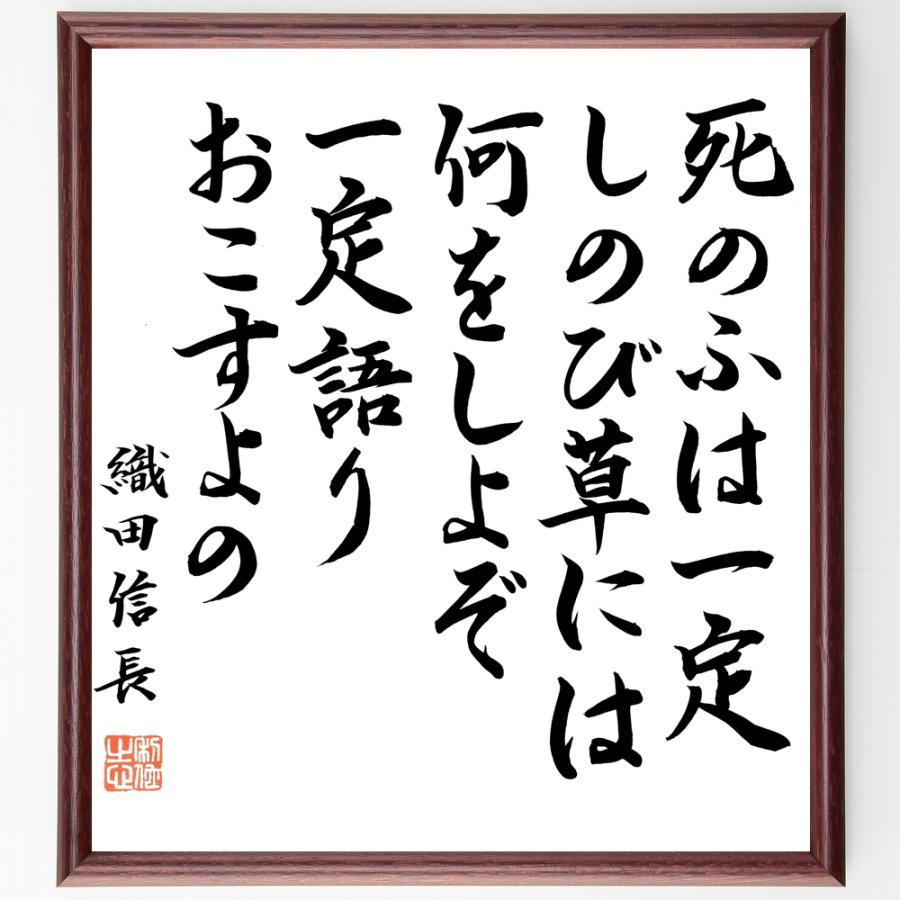 死のふは一定
しのび草には
何をしよぞ
一定語り
おこすよの
織田信長